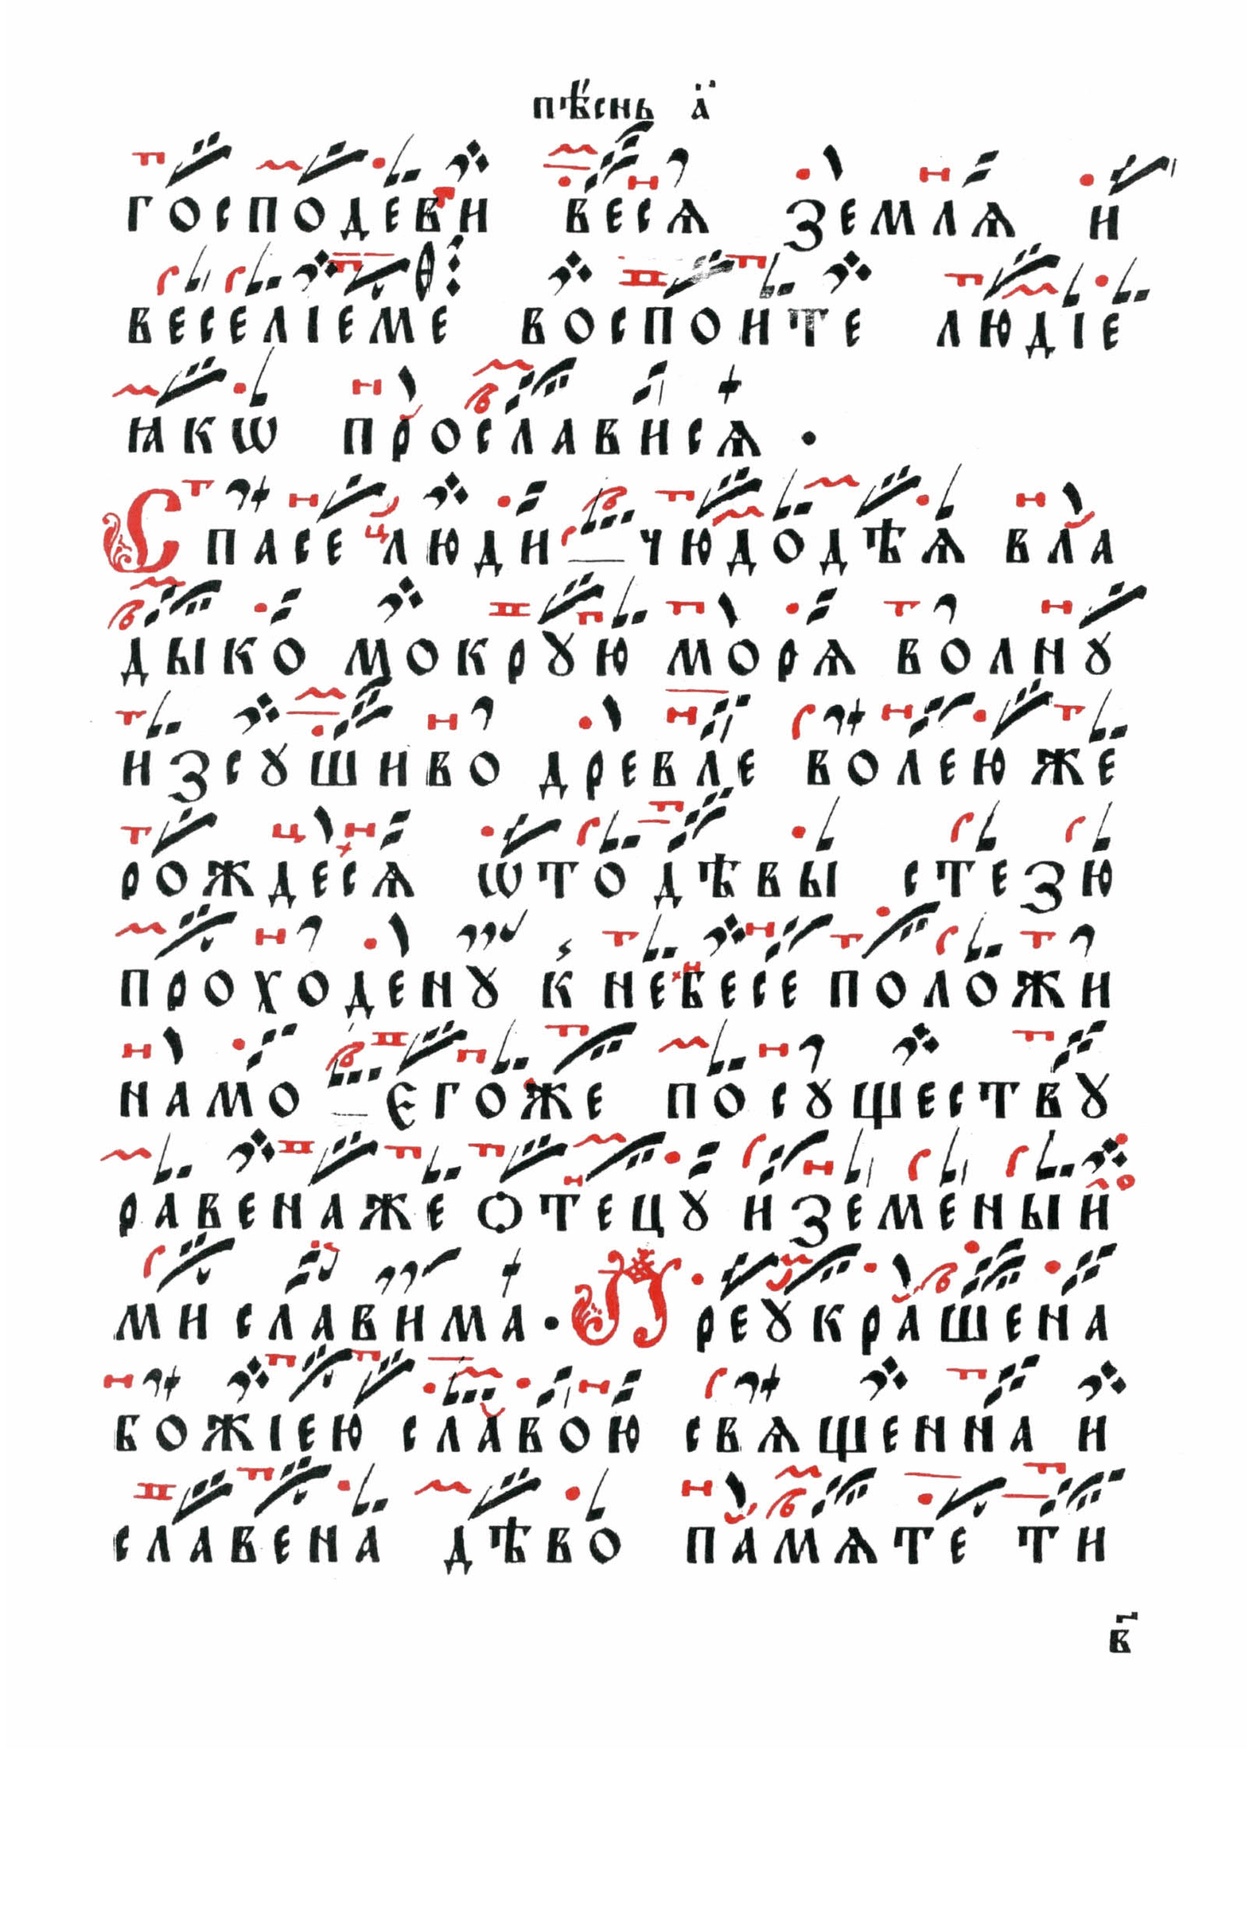 пѣ́снь а҃
господеви весѧ землѧ и
веселіеме воспоите людіе
ꙗкѡ прослависѧ ·
Спасе люди чюдодѣѧ вла
дыко мокрꙋю морѧ волнꙋ
изсꙋшиво древле волею же
рождесѧ ѿто дѣвы стезю
проходенꙋ к небесе положи
намо егоже по сꙋществꙋ
равена же отецꙋ и земеный
ми славима · Преꙋкрашена
божіею славою свѧщенна и
славена дѣво памѧте ти
в҃